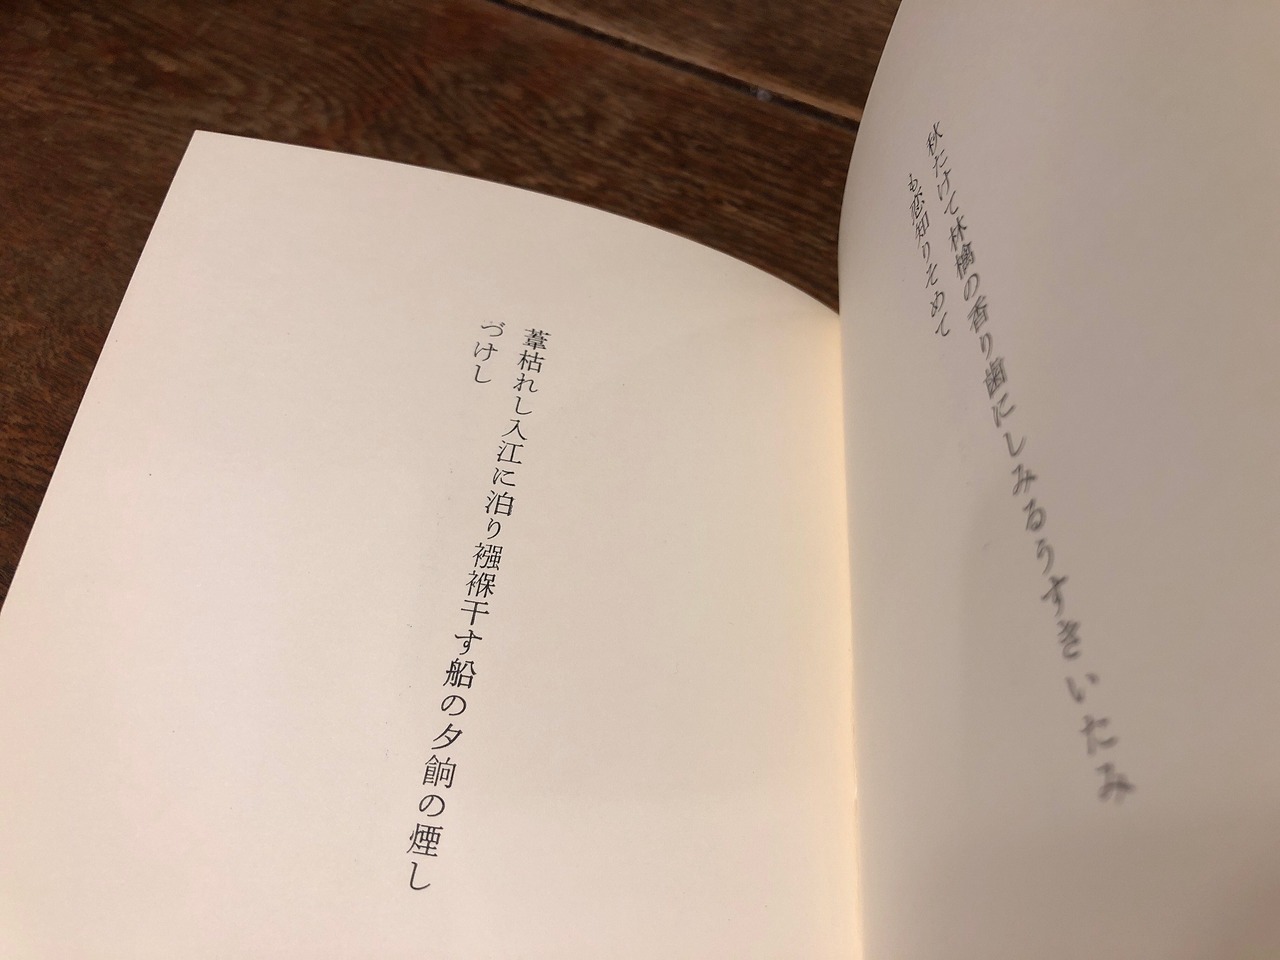 秋たけて林檎の香り歯にしみるうすきいたみ
も恋知りそめて
葦枯れし入江に泊り襁褓干す船の夕餉の煙し
づけし